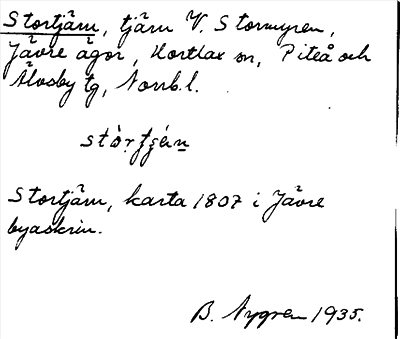 Stortjärn, tjärn V. Stormyren,
Jävre ägor, Hortlax sn, Piteå och
Älvsby tg, Norrb.l.
Stortjärn, karta 1807 i Jävre
byaskrin.
B. Nygren 1935.